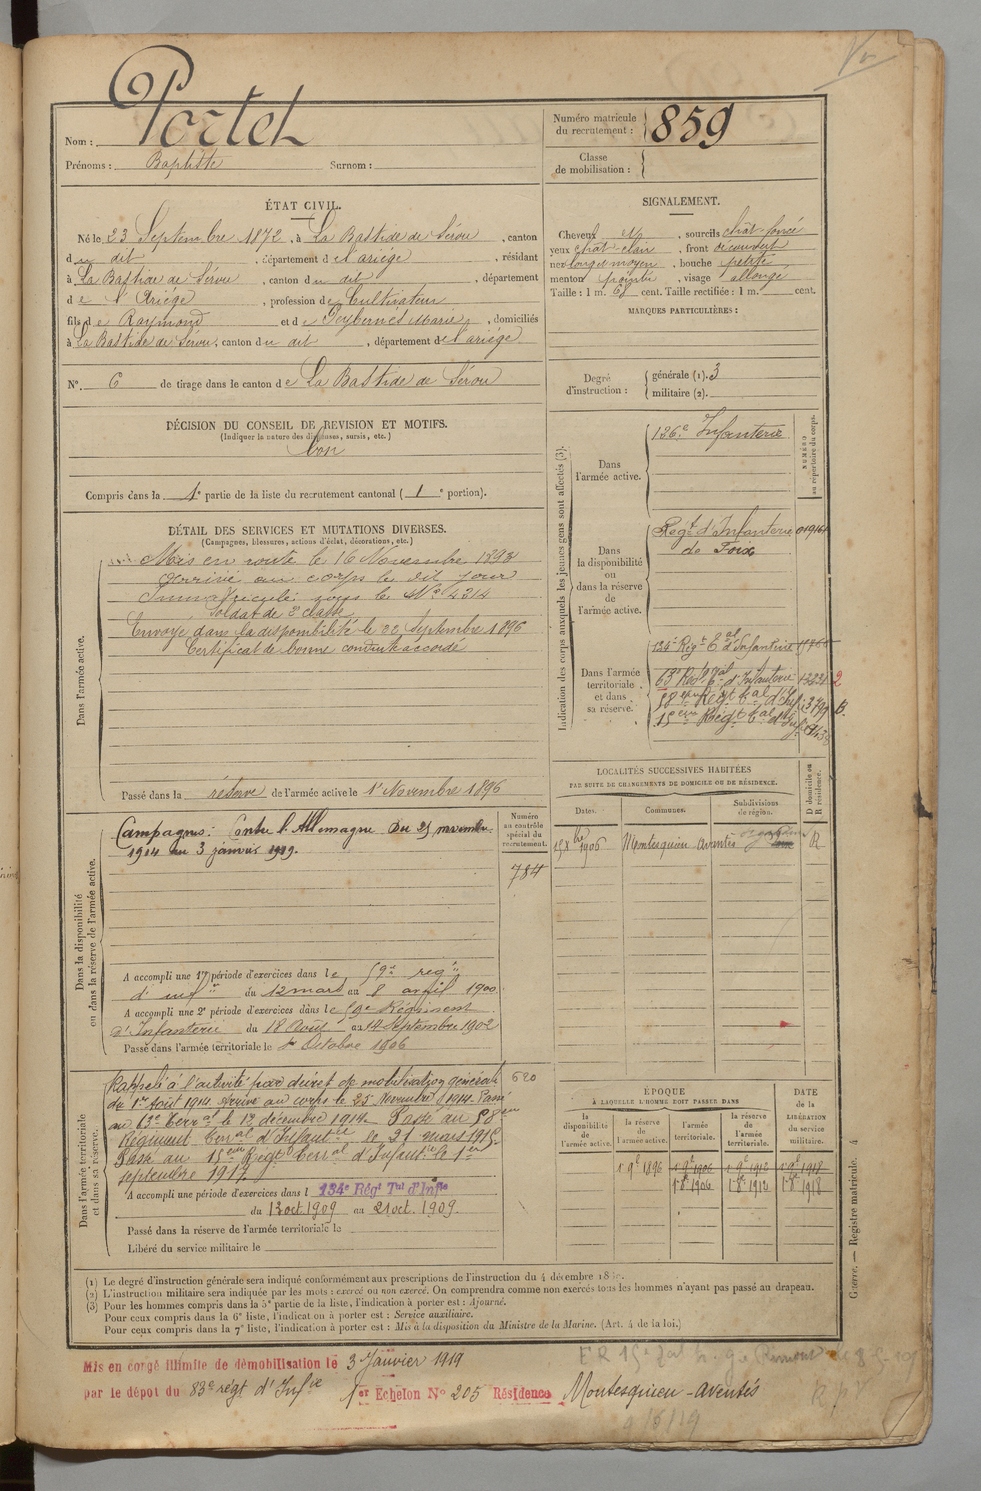 Nom : Portet
Prénoms : Baptiste Surnom :
Numéro matricule du recrutement : 859
Classe de mobilisation :
ÉTAT CIVIL.
Né le 23 Septembre 1872, à La Bastide de Sérou, canton
du dit, département de l'ariège, résidant
à La Bastide de Sérou, canton du dit, département
de l'Ariège, profession de Cultivateur
fils de Raymond et de Peybernès Marie, domiciliés
à La Bastide de Sérou, canton du dit, département de l'ariège.
N°. 6 de tirage dans le canton de La Bastide de Sérou
SIGNALEMENT.
Cheveux , sourcils chât-foncé
yeux chât-clair, front découvert
nez long et moyen, bouche petite
menton pointu, visage allongé
Taille : 1 m. 68 cent. Taille rectifiée : 1 m. cent.
MARQUES PARTICULIÈRES :
Degré d'instruction : générale (1). 3
militaire (2).
DÉCISION DU CONSEIL DE REVISION ET MOTIFS.
(Indiquer la nature des dispenses, sursis, etc.)
bon
Compris dans la 1e partie de la liste du recrutement cantonal ( 1e portion).
DÉTAIL DES SERVICES ET MUTATIONS DIVERSES.
(Campagnes, blessures, actions d'éclat, décorations, etc.)
Dans l'armée active.
Mis en route le 16 Novembre 1893
arrivé au corps le dit jour
Immatriculé sous le N° 4314
Soldat de 2e classe
Envoyé dans la disponibilité le 22 Septembre 1896
Certificat de bonne conduite accordé
Passé dans la réserve de l'armée active le 1r Novembre 1896
Indication des corps auxquels les jeunes gens sont affectés (3).
NUMÉRO au répertoire du corps.
Dans l'armée active.
126e Infanterie
Dans la disponibilité ou dans la réserve de l'armée active.
Regt d'Infanterie
de Foix
Dans l'armée territoriale et dans sa réserve.
134e Régt Tal d'Infanterie
63e Régt Tal d'Infanterie
58ème Régt Tal d'Inf
15ème Régt Tal d'Inf
LOCALITÉS SUCCESSIVES HABITÉES
PAR SUITE DE CHANGEMENTS DE DOMICILE OU DE RÉSIDENCE.
Dates. Communes. Subdivisions de région. D domicile ou R résidence.
15 Xbre 1906 Montesquieu Avantès R
Dans la disponibilité ou dans la réserve de l'armée active.
Numéro au contrôle spécial du recrutement.
784
Campagnes : Contre l'Allemagne Du 25 novembre
1914 au 3 janvier 1919.
A accompli une 1re période d'exercices dans le 59e régit
d'infie du 12 mars au 8 avril 1900.
A accompli une 2e période d'exercices dans le 59e Régiment
d'Infanterie du 18 Août au 14 Septembre 1902
Passé dans l'armée territoriale le 1er Octobre 1906
Dans l'armée territoriale et dans sa réserve.
620
Rappelé à l'activité par décret de mobilisation générale
du 1er Août 1914. Arrivé au corps le 25 Novembre 1914. Passé
au 63e Terral le 12 décembre 1914. Passé au 58ème
Régiment Terral d'Infantrie le 21 mars 1915.
Passé au 15ème Régt Terral d'Infantie le 1er
septembre 1917.
A accompli une période d'exercices dans l 134e Régt Tal d'Infie
du 13 oct. 1909 au 21 oct. 1909.
Passé dans la réserve de l'armée territoriale le
Libéré du service militaire le
ÉPOQUE
À LAQUELLE L'HOMME DOIT PASSER DANS
DATE de la LIBÉRATION du service militaire.
la disponibilité de l'armée active.
la réserve de l'armée active.
l'armée territoriale.
la réserve de l'armée territoriale.
1 9e 1896 1 9e 1906 1 9e 1912 1 9e 1918
1 8e 1906 1 8e 1912 1 8e 1918
(1) Le degré d'instruction générale sera indiqué conformément aux prescriptions de l'instruction du 4 décembre
(2) L'instruction militaire sera indiquée par les mots : exercé ou non exercé. On comprendra comme non exercés tous les hommes n'ayant pas passé au drapeau.
(3) Pour les hommes compris dans la 5e partie de la liste, l'indication à porter est : Ajourné.
Pour ceux compris dans la 6e liste, l'indication à porter est : Service auxiliaire.
Pour ceux compris dans la 7e liste, l'indication à porter est : Mis à la disposition du Ministre de la Marine. (Art. 4 de la loi.)
Guerre. — Registre matricule. 4
Mis en congé illimité de démobilisation le 3 Janvier 1919
par le dépôt du 83e régt d'Infie 1er Echelon N° 205 Résidence Montesquieu-Avantès